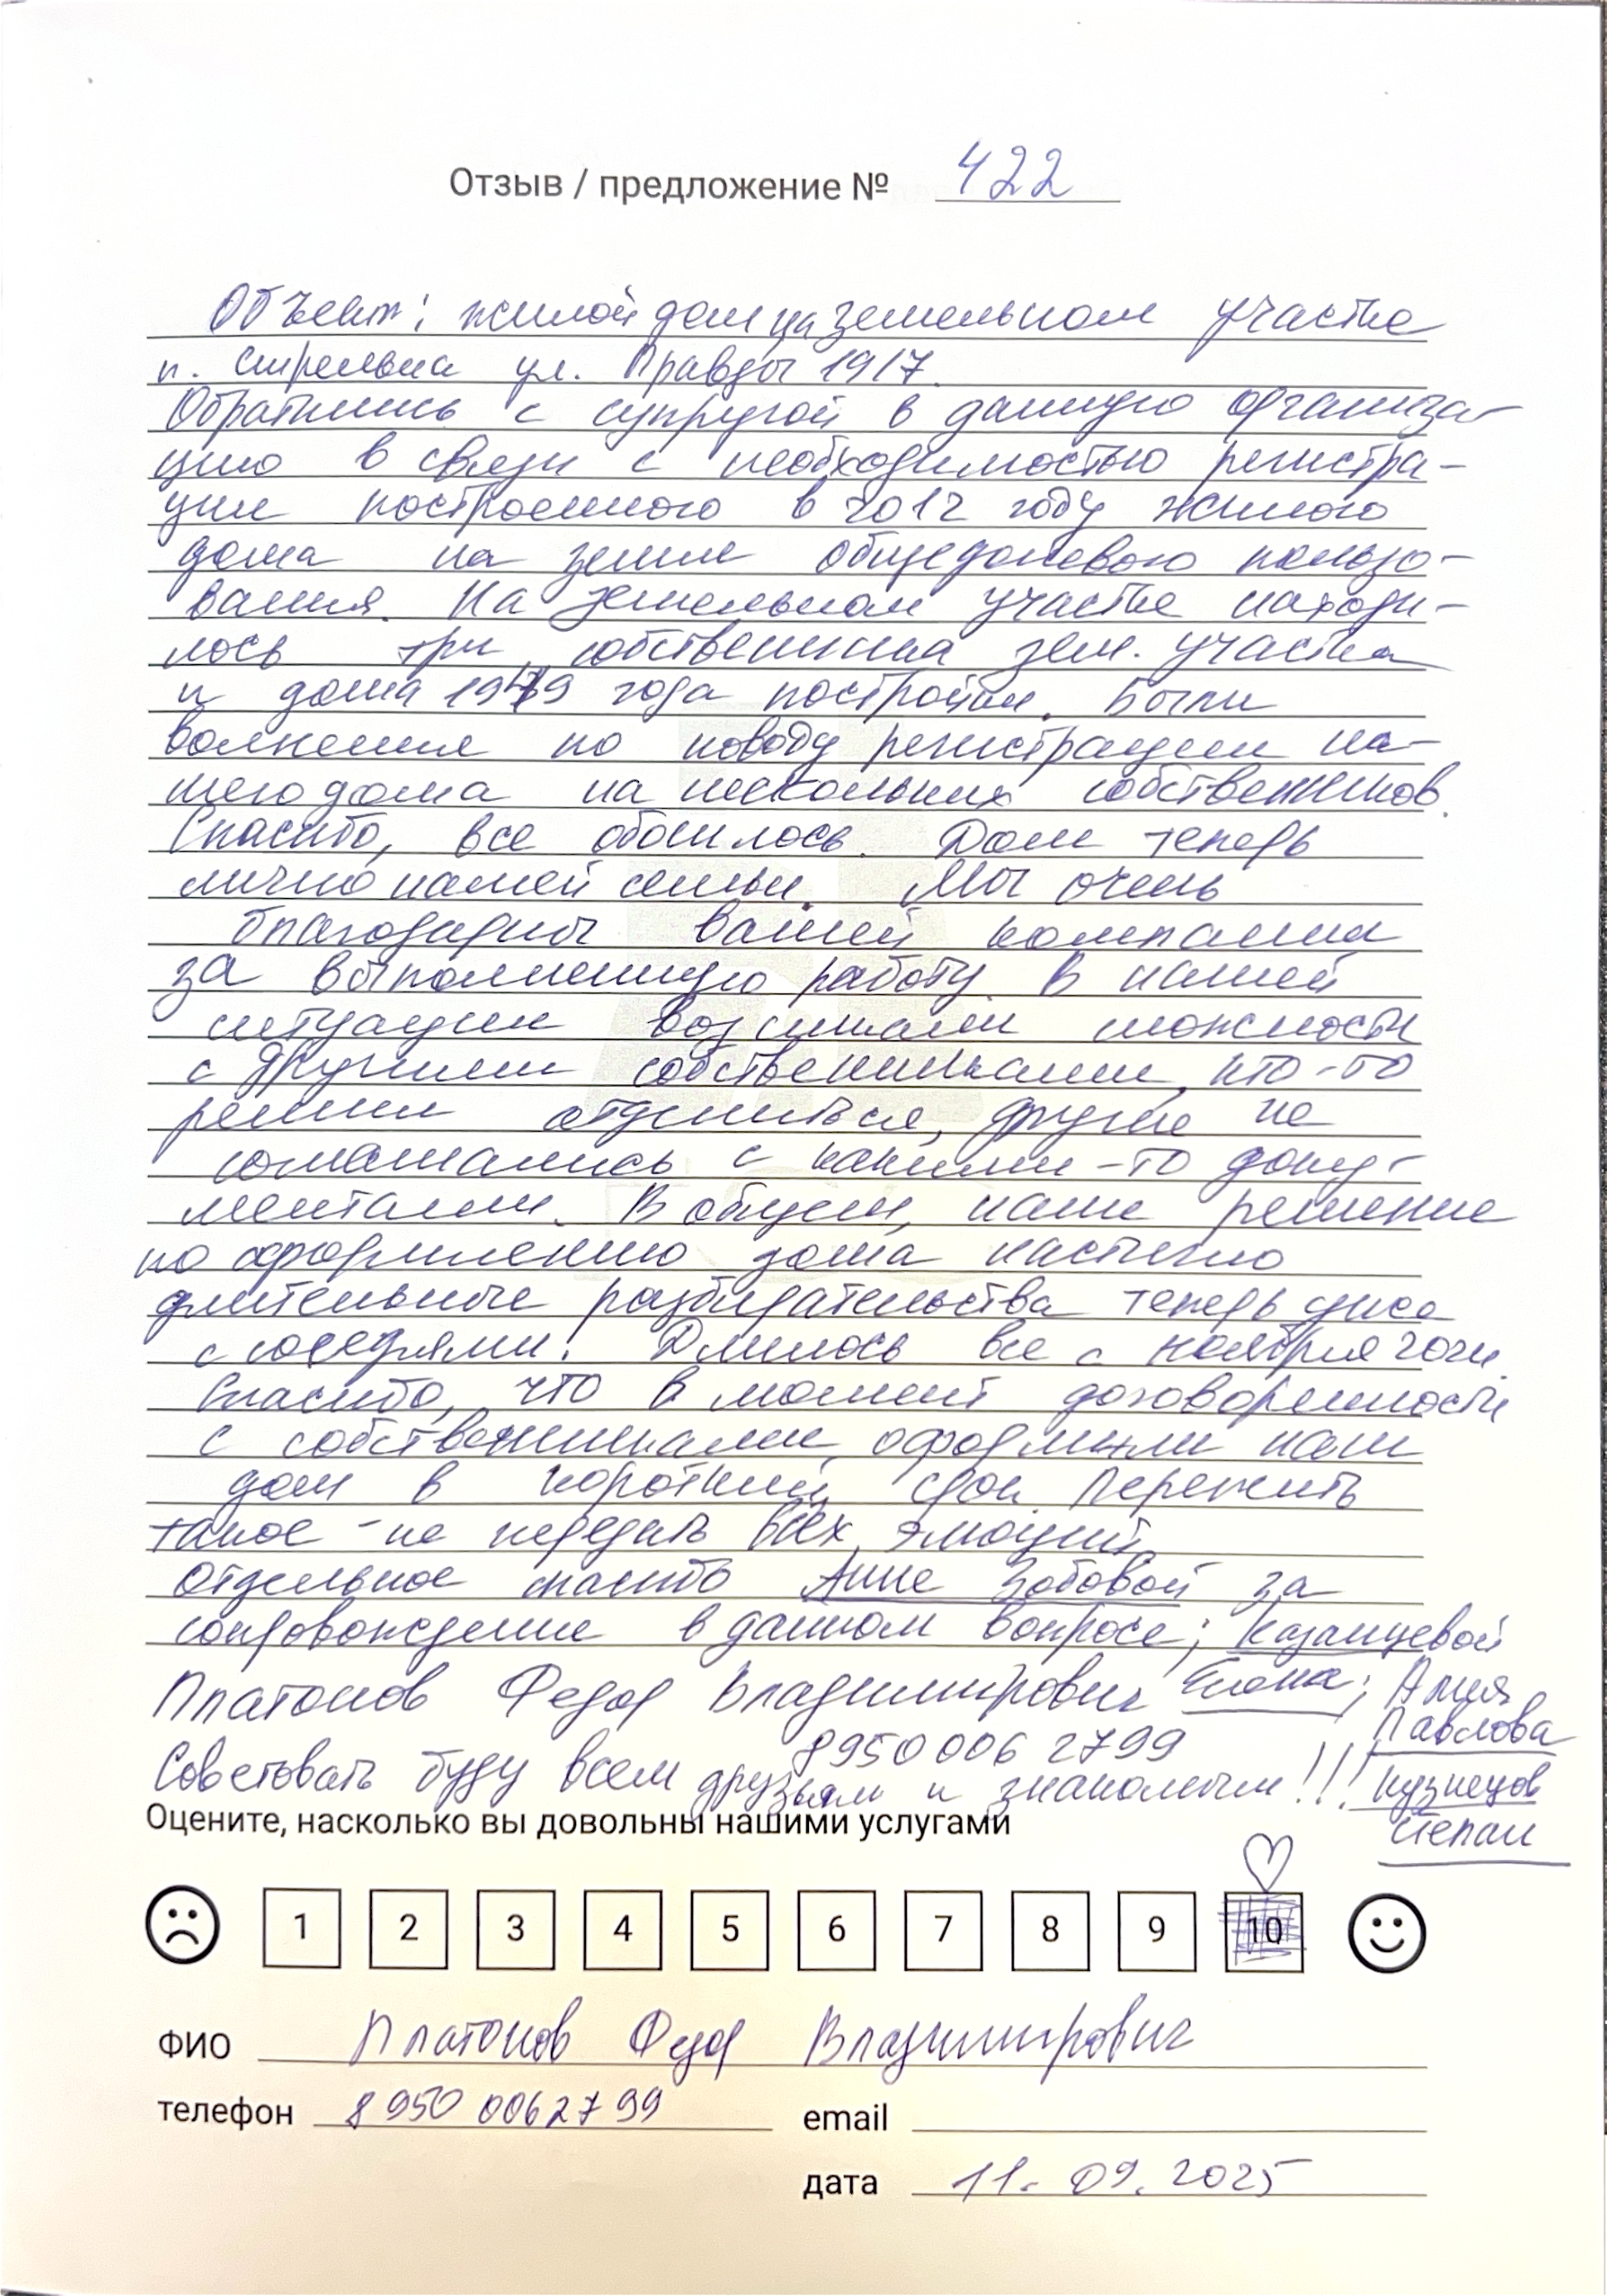 Отзыв / предложение № 422
Объект: жилой дом на земельном участке
п. Стрельна ул. Правды 19/7.
Обратились с супругой в данную организа-
цию в связи с необходимостью регистра-
ции построенного в 2012 году жилого
дома на земле общедолевого пользо-
вания. На земельном участке находи-
лось три собственника зем. участка
и дома года постройки. Были
волнения по поводу регистрации на-
шего дома на нескольких собственников.
Спасибо, все обошлось. Дом теперь
лично нашей семьи. Мы очень
благодарны вашей компании
за выполненную работу. В нашей
ситуации возникали сложности
с другими собственниками, кто-то
решил отделиться, другие не
соглашались с какими-то доку-
ментами. В общем, наше решение
по оформлению дома настигло
длительные разбирательства теперь уже
с соседями! Длилось все с ноября 2024.
Спасибо, что в момент договоренности
с собственниками, оформили наш
дом в короткий срок. Пережить
такое - не передать всех эмоций.
Отдельное спасибо Анне Зобовой за
сопровождение в данном вопросе; Казанцевой
Платонов Федор Владимирович Елена; Алия
Павлова
8950 006 2799
Советовать буду всем друзьям и знакомым!!! Кузнецов
Степан
Оцените, насколько вы довольны нашими услугами
1 2 3 4 5 6 7 8 9 10
ФИО Платонов Федор Владимирович
телефон 8 950 006 27 99 email
дата 11.09.2025